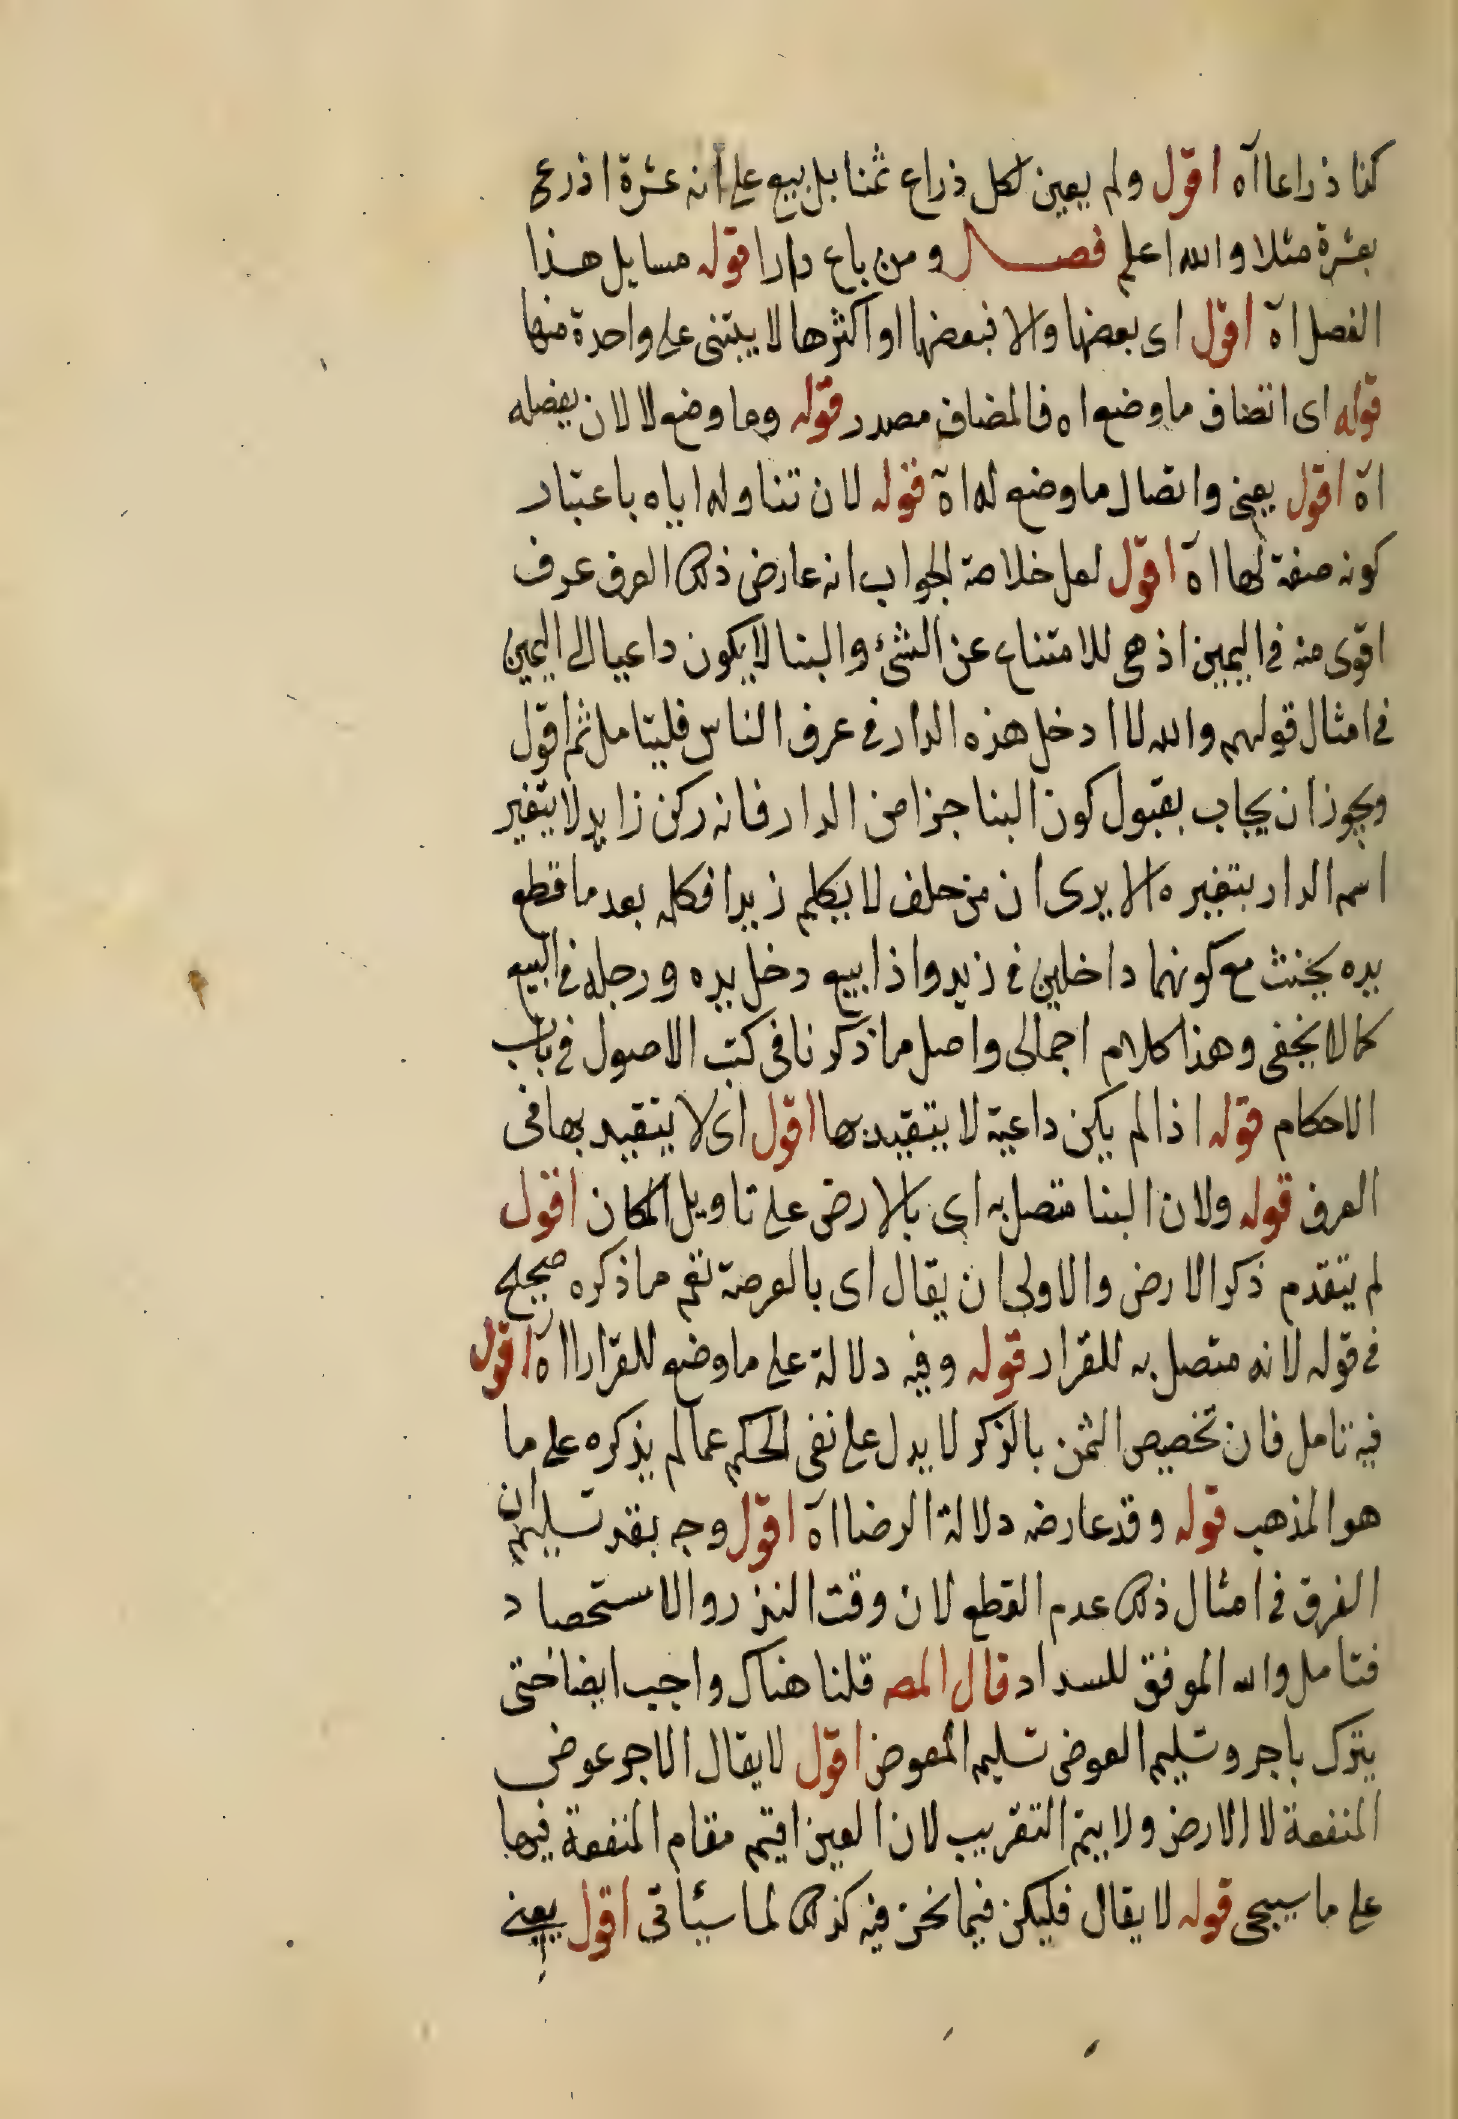 كذا ذراعا اه اقول ولم يعين لكل ذراع ثمنا بل بيع على انه عشرة اذرع
بعشرة مثلا والله اعلم فصل ومن باع دارا قوله مسايل هذا
الفصل اه اقول اى بعضها والا فبعضها او اكثرها لا يبتنى على واحدة منها
قوله اى اتصاف ما وضع اه فالمضاف مصدر قوله وما وضع لا لان يفصله
اه اقول يعنى واتصال ما وضع له اه قوله لان تناوله اياه باعتبار
كونه صفة لها اه اقول لعل خلاصة الجواب انه عارض ذلك العرف عرف
اقوى منه فى اليمين اذ هى للامتناع عن الشئ والبنا لا يكون داعيا الى اليمين
فى امثال قولهم والله لا ادخل هذه الدار فى عرف الناس فليتامل ثم اقول
ويجوز ان يجاب بقبول كون البنا جزا من الدار فانه ركن زايد لا يتغير
اسم الدار بتغيره الا يرى ان من حلف لا يكلم زيدا فكلمه بعد ما قطع
يده يحنث مع كونهما داخلين فى زيد واذا بيع دخل يده ورجله فى البيع
كما لا يخفى وهذا كلام اجمالى واصل ما ذكرنا فى كتب الاصول فى باب
الاحكام قوله اذا لم يكن داعية لا يتقيد بها اقول اى لا يتقيد بها فى
العرف قوله ولان البنا متصل به اى بالارض على تاويل المكان اقول
لم يتقدم ذكر الارض والاولى ان يقال اى بالعرصة نعم ما ذكره صحيح
فى قوله لانه متصل به للقرار قوله وفيه دلالة على ما وضع للقرار اه اقول
فيه تامل فان تخصيص الثمن بالذكر لا يدل على نفى الحكم عما لم يذكره على ما
هو المذهب قوله وقد عارضه دلالة الرضا اه اقول وجه بعد تسليم ان
الفرق فى امثال ذلك عدم القطع لان وقت النذر والاستحصاد
فتامل والله الموفق للسداد قال المص قلنا هناك واجب ايضا حتى
يترك باجر وتسليم العوض تسليم المعوض اقول لا يقال الاجر عوض
المنفعة لا الارض ولا يتم التقريب لان العين اقيم مقام المنفعة فيها
على ما سيجى قوله لا يقال فليكن فيما نحن فيه كذلك لما سيأتى اقول يعنى